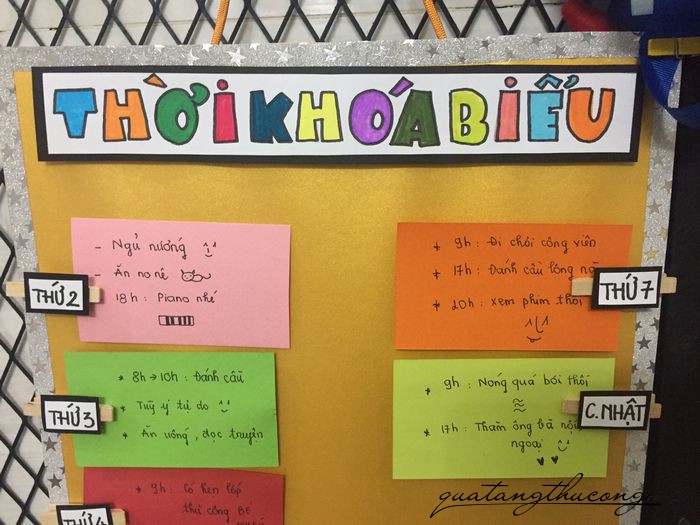 THỜI KHÓA BIỂU
THỨ 2
- Ngủ nướng
- Ăn no nê
18h : Piano nhé
THỨ 3
* 8h → 10h : Đánh cầu
* Tuỳ ý tự do
* Ăn uống, đọc truyện
THỨ 4
* 9h : Có hẹn lớp
thủ công BÉ
THỨ 7
* 9h : Đi chơi công viên
* 17h : Đánh cầu lông nà
* 20h : Xem phim thôi
C. NHẬT
* 9h : Nóng quá bơi thôi
* 17h : Thăm ông bà nội
ngoại
quatangthucong